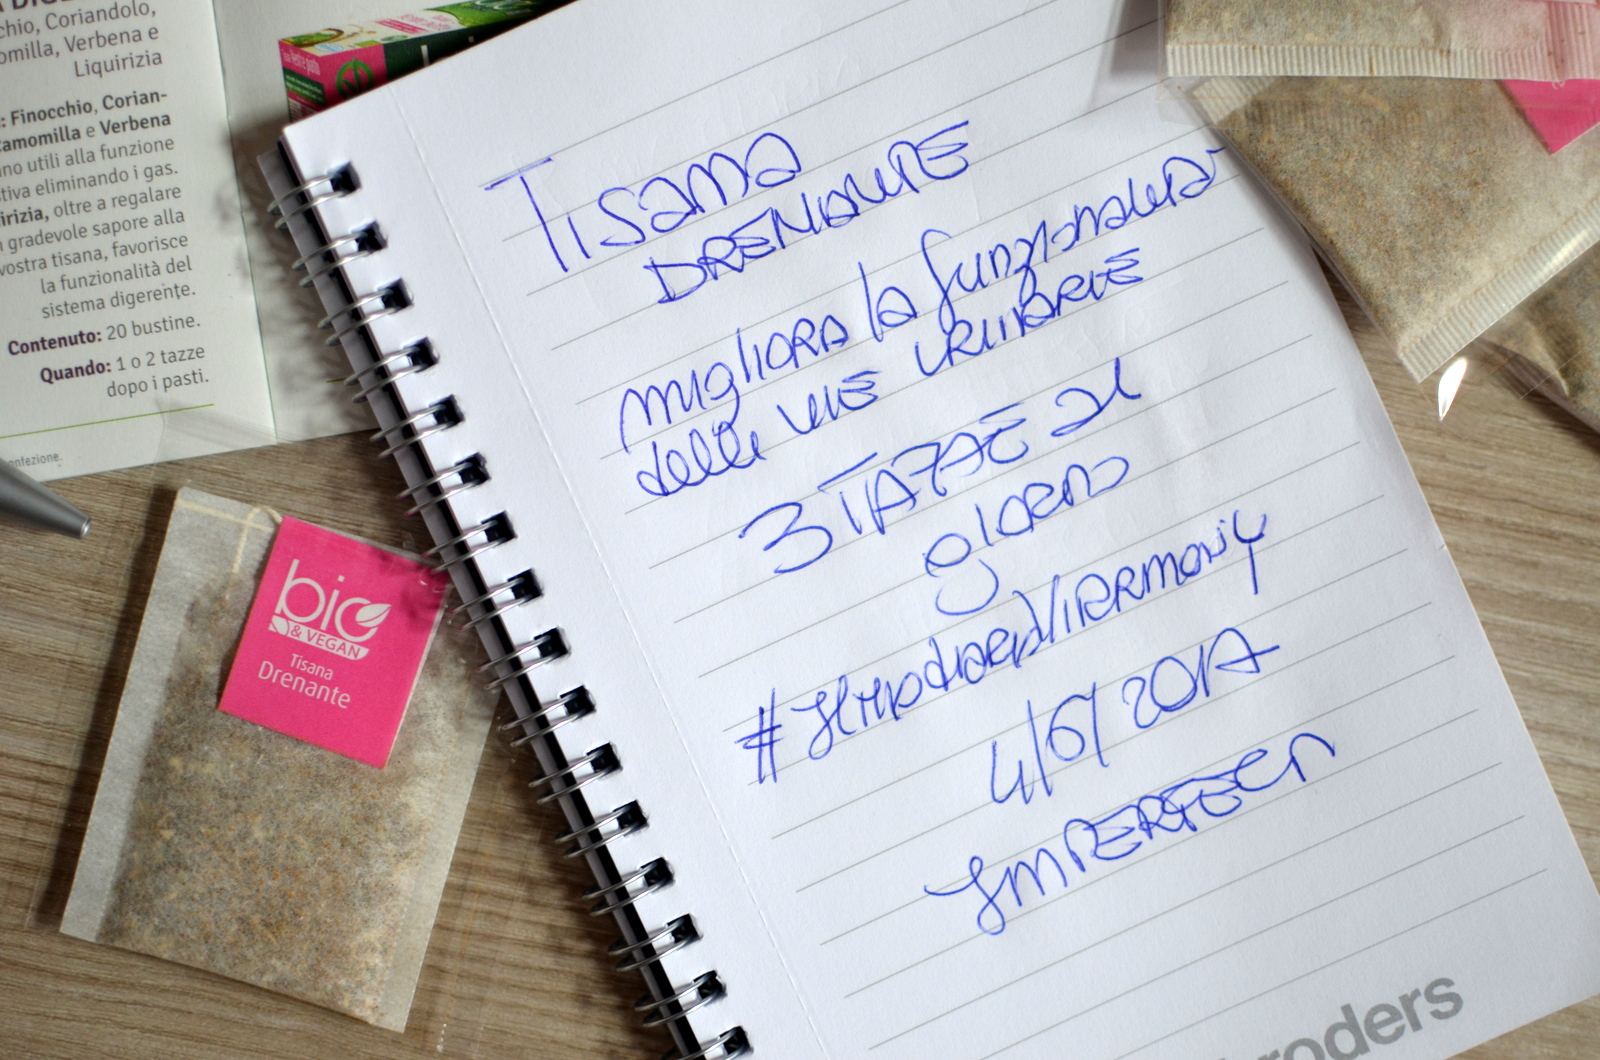 chio, Coriandolo,
omilla, Verbena e
Liquirizia
: Finocchio, Corian-
Camomilla e Verbena
no utili alla funzione
stiva eliminando i gas.
irizia, oltre a regalare
n gradevole sapore alla
vostra tisana, favorisce
la funzionalità del
sistema digerente.
Contenuto: 20 bustine.
Quando: 1 o 2 tazze
dopo i pasti.
onfezione.
bio
& VEGAN
Tisana
Drenante
Tisana
DRENANTE
migliora la funzionalità
delle VIE URINARIE
3 TAZZE al
giorno
4/6/2017
IMPERFECT
roders